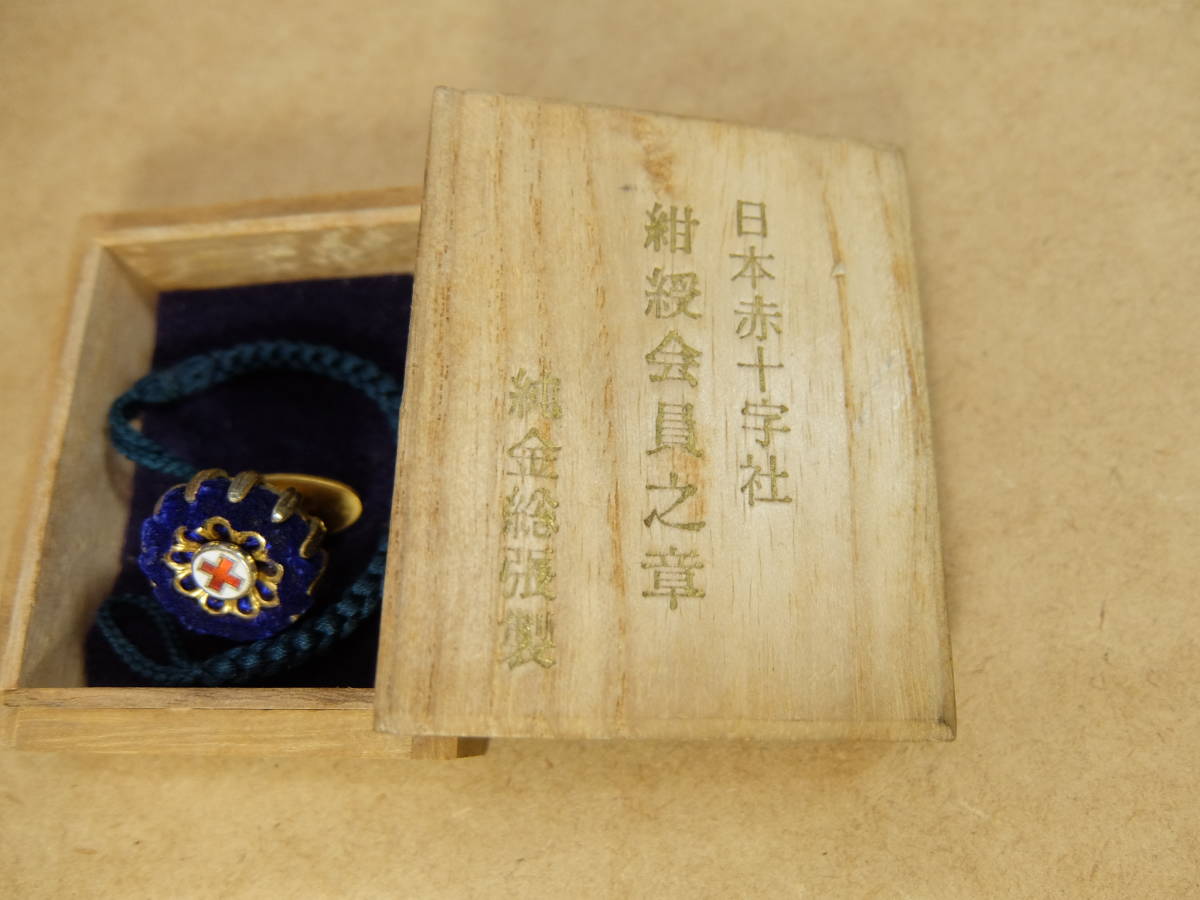 日本赤十字社
紺綬会員之章
純金総張製